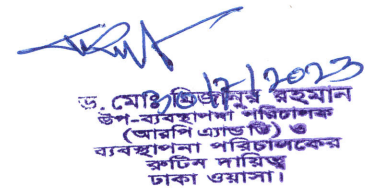 ৩০/7/2023
ড. মোঃ মিজানুর রহমান
উপ-ব্যবস্থাপনা পরিচালক
(আরপি এ্যান্ড ডি) ও
ব্যবস্থাপনা পরিচালকের
রুটিন দায়িত্ব
ঢাকা ওয়াসা।